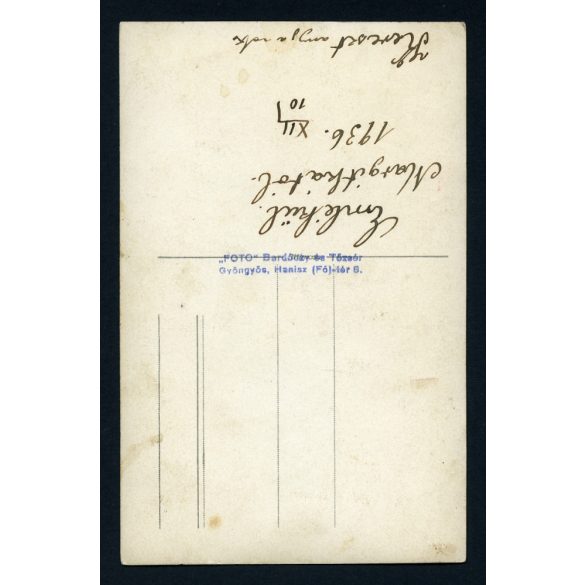 Emlékül.
Margitkától.
1936. XII/10
Kereszt anyja
"FOTO" és Tőzsér
Gyöngyös, Hanisz (Fő)-tér 8.